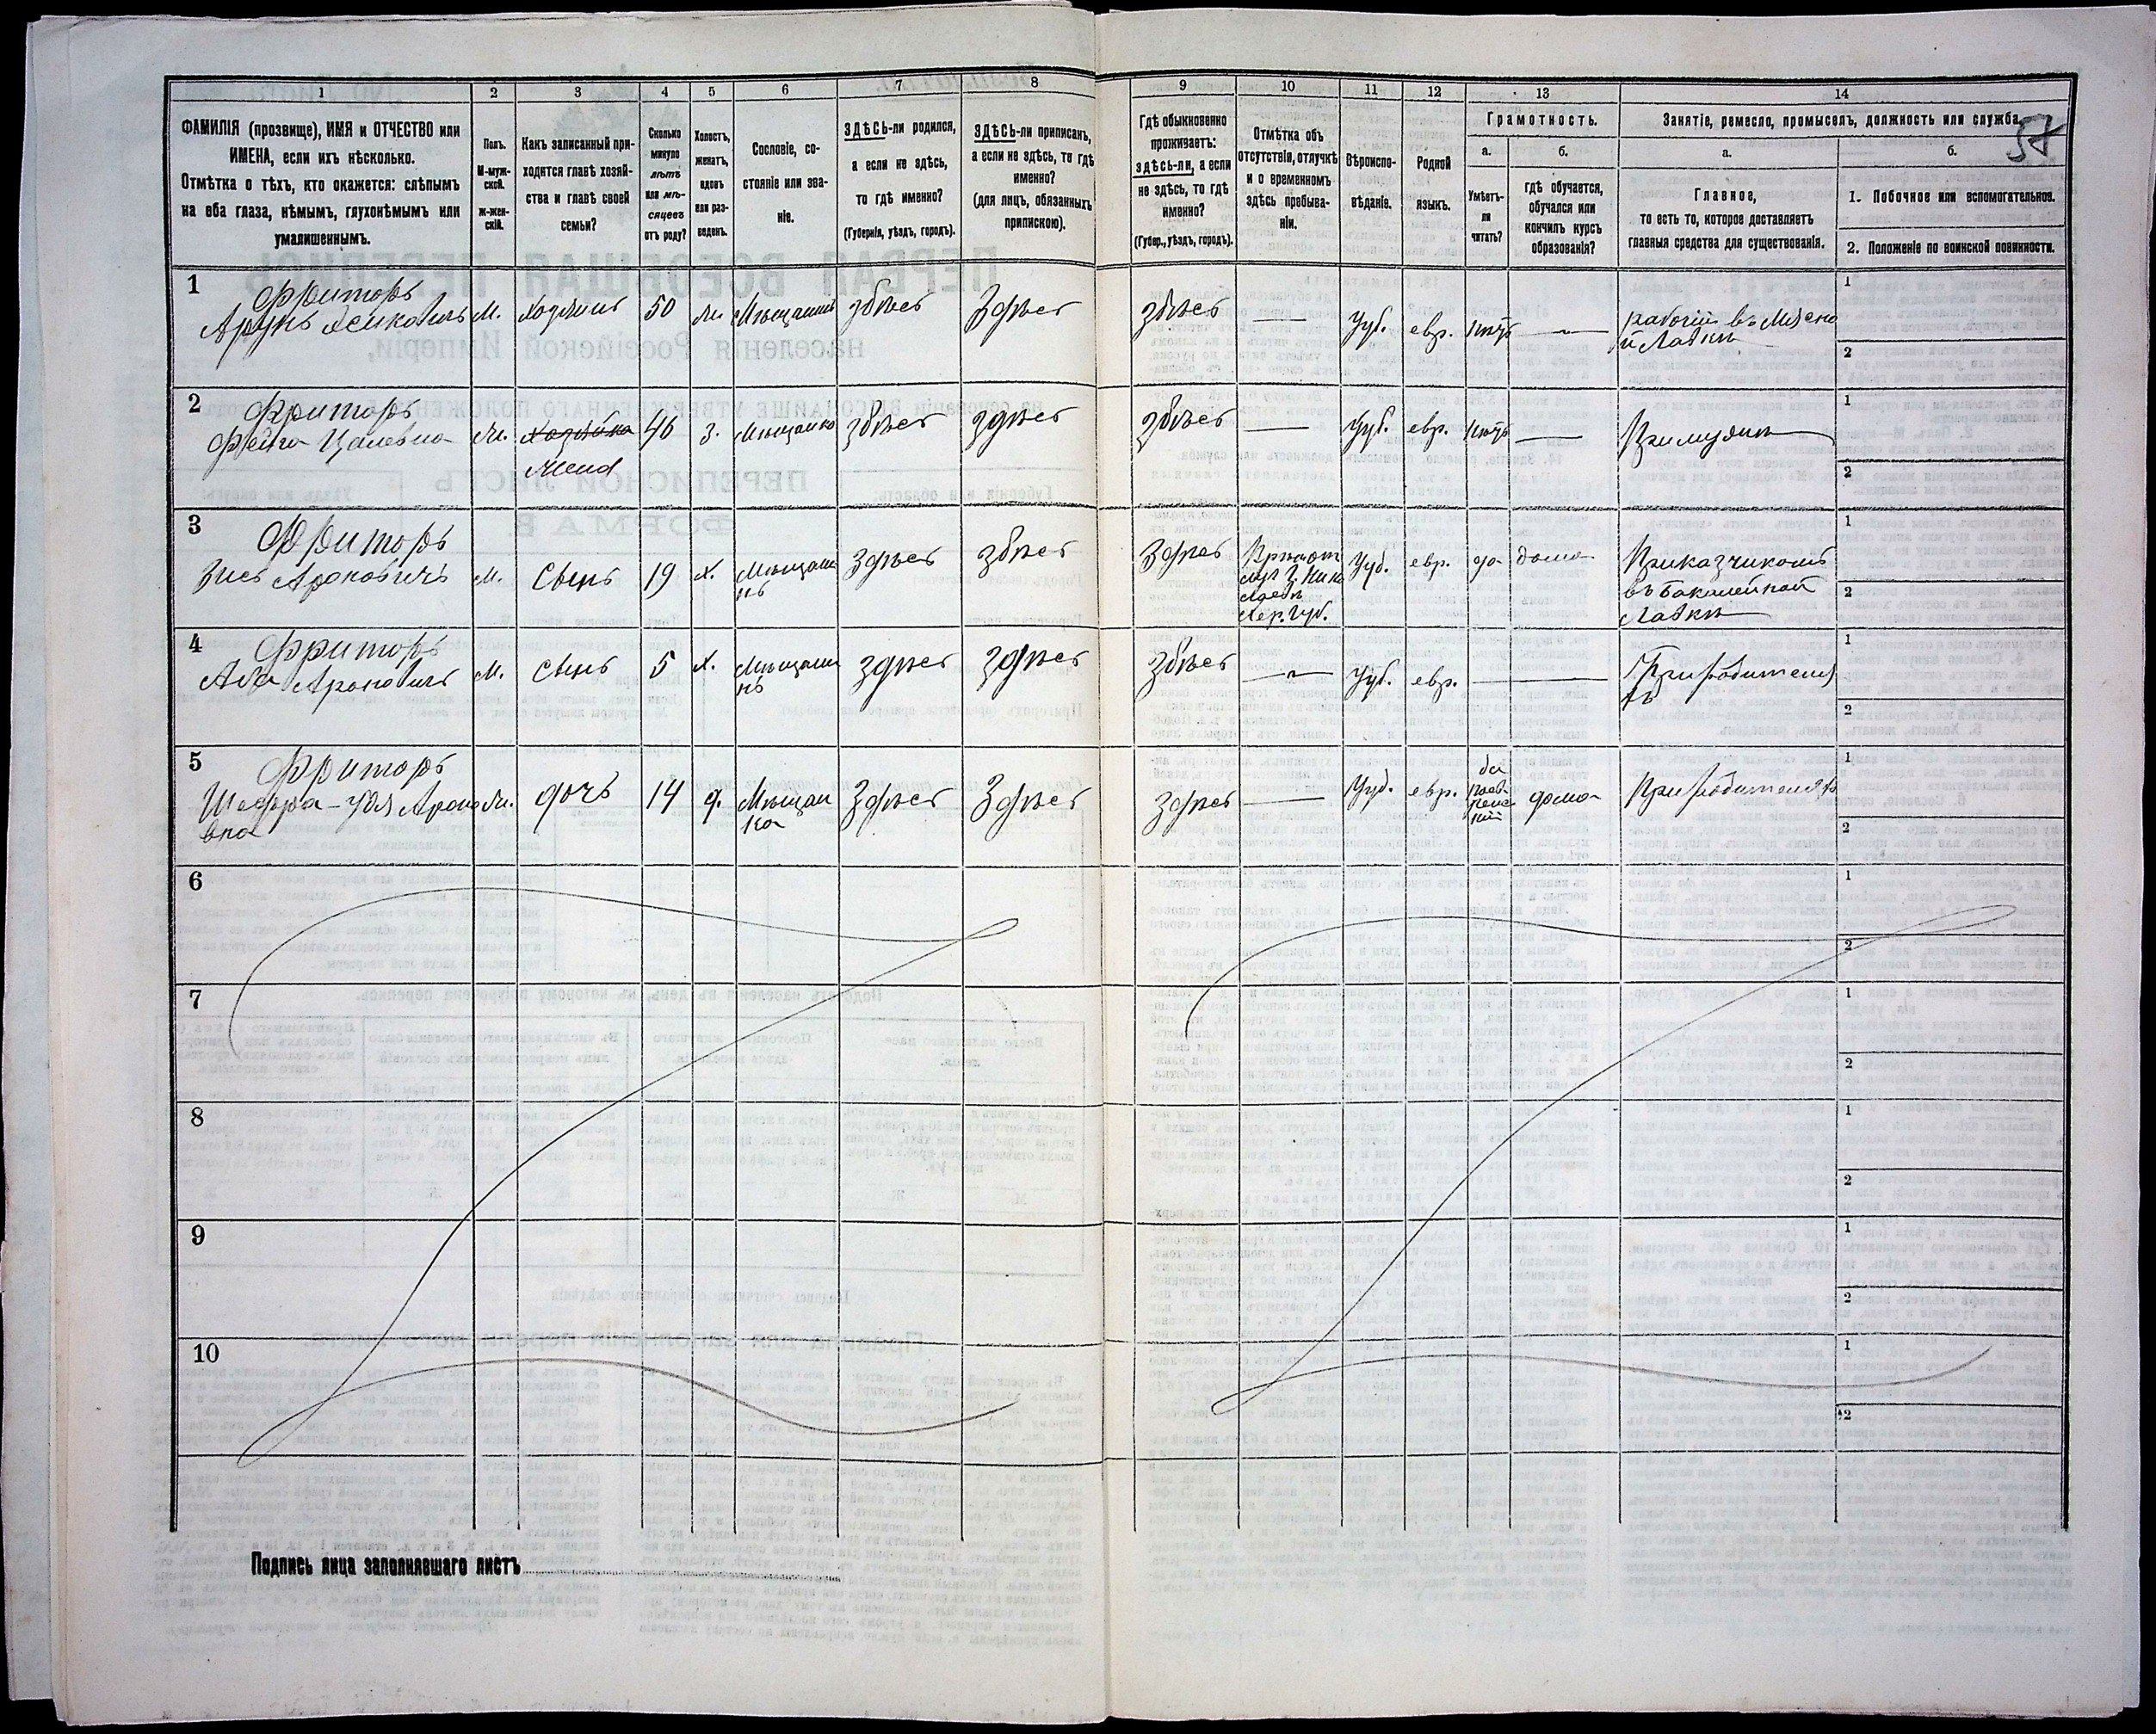 1 2 3 4 5 6 7 8 9 10 11 12 13 14
ФАМИЛІЯ (прозвище), ИМЯ и ОТЧЕСТВО или
ИМЕНА, если ихъ нѣсколько.
Отмѣтка о тѣхъ, кто окажется: слѣпымъ
на оба глаза, нѣмымъ, глухонѣмымъ или
умалишеннымъ.
Полъ.
М-муж-
ской.
ж-жен-
скій.
Какъ записанный при-
ходится главѣ хозяй-
ства и главѣ своей
семьи?
Сколько
минуло
лѣтъ
или мѣ-
сяцевъ
отъ роду?
Холостъ,
женатъ,
вдовъ
или раз-
веденъ.
Сословіе, со-
стояніе или зва-
ніе.
ЗДѢСЬ-ли родился,
а если не здѣсь,
то гдѣ именно?
(Губернія, уѣздъ, городъ).
ЗДѢСЬ-ли приписанъ,
а если не здѣсь, то гдѣ
именно?
(для лицъ, обязанныхъ
припискою).
Гдѣ обыкновенно
проживаетъ:
здѣсь-ли, а если
не здѣсь, то гдѣ
именно?
(Губер., уѣздъ, городъ).
Отмѣтка объ
отсутствіи, отлучкѣ
и о временномъ
здѣсь пребыва-
ніи.
Вѣроиспо-
вѣданіе.
Родной
языкъ.
Грамотность.
а.
Умѣетъ-
ли
читать?
б.
гдѣ обучается,
обучался или
кончилъ курсъ
образованія?
Занятіе, ремесло, промыселъ, должность или служба.
57
а.
Главное,
то есть то, которое доставляетъ
главныя средства для существованія.
б.
1. Побочное или вспомогательное.
2. Положеніе по воинской повинности.
1
Фриторъ
Арунъ М. Хозяинъ 50 Мѣщанинъ здѣсь Здѣсь здѣсь — Іуд. евр. нѣтъ — рабочій въ Мясно
й Лавкѣ
1
2
2
Фриторъ
Фейга Цалевна ж. Хозяйка 46 з. Мѣщанка здѣсь здѣсь здѣсь — Іуд. евр. нѣтъ — При мужѣ
Жена
1
2
3
Фриторъ
Зись Ароновичъ м. Сынъ 19 х. Мѣщани
нъ
Здѣсь здѣсь Здѣсь
Хер. губ.
Іуд. евр. да дома
Приказчикомъ
въ бакалейной
Лавкѣ
1
2
4
Фриторъ
Аба Ароновичъ м. Сынъ 5 х. Мѣщани
нъ
здѣсь здѣсь здѣсь — Іуд. евр. — —
При родителя
хъ
1
2
5
Фриторъ
Шифра-Удя Ароно
вна
ж. дочь 14 д. Мѣщан
ка
Здѣсь Здѣсь здѣсь — Іуд. евр.
да
по ев
рейс
кій
дома При родителяхъ
1
2
6
1
2
7
1
2
8
1
2
9
1
2
10
1
2
Подпись лица заполнявшаго листъ